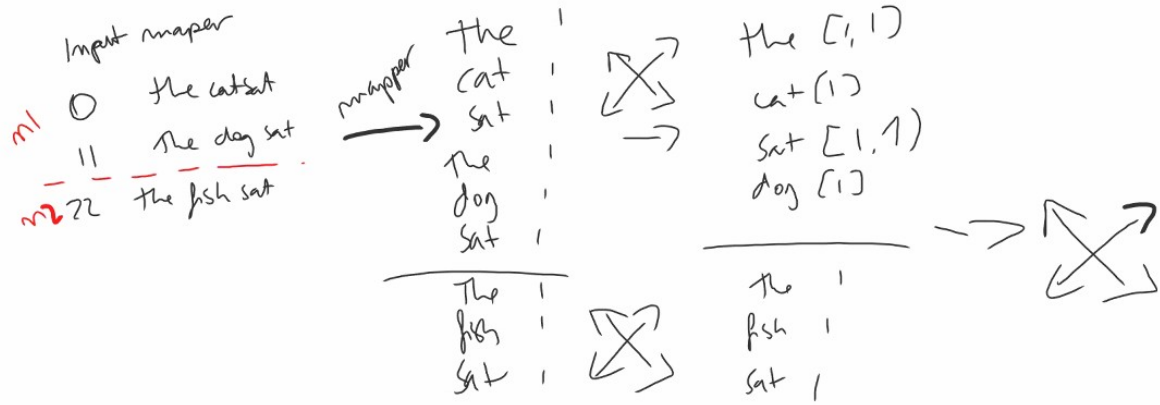 Input maper
m1
0 the catsat
11 The dog sat
m2 22 the fish sat
mapper
the 1
cat 1
sat 1
The 1
dog 1
sat 1
The 1
fish 1
sat 1
the [1, 1)
cat [1)
sat [1, 1)
dog [1]
the 1
fish 1
sat 1